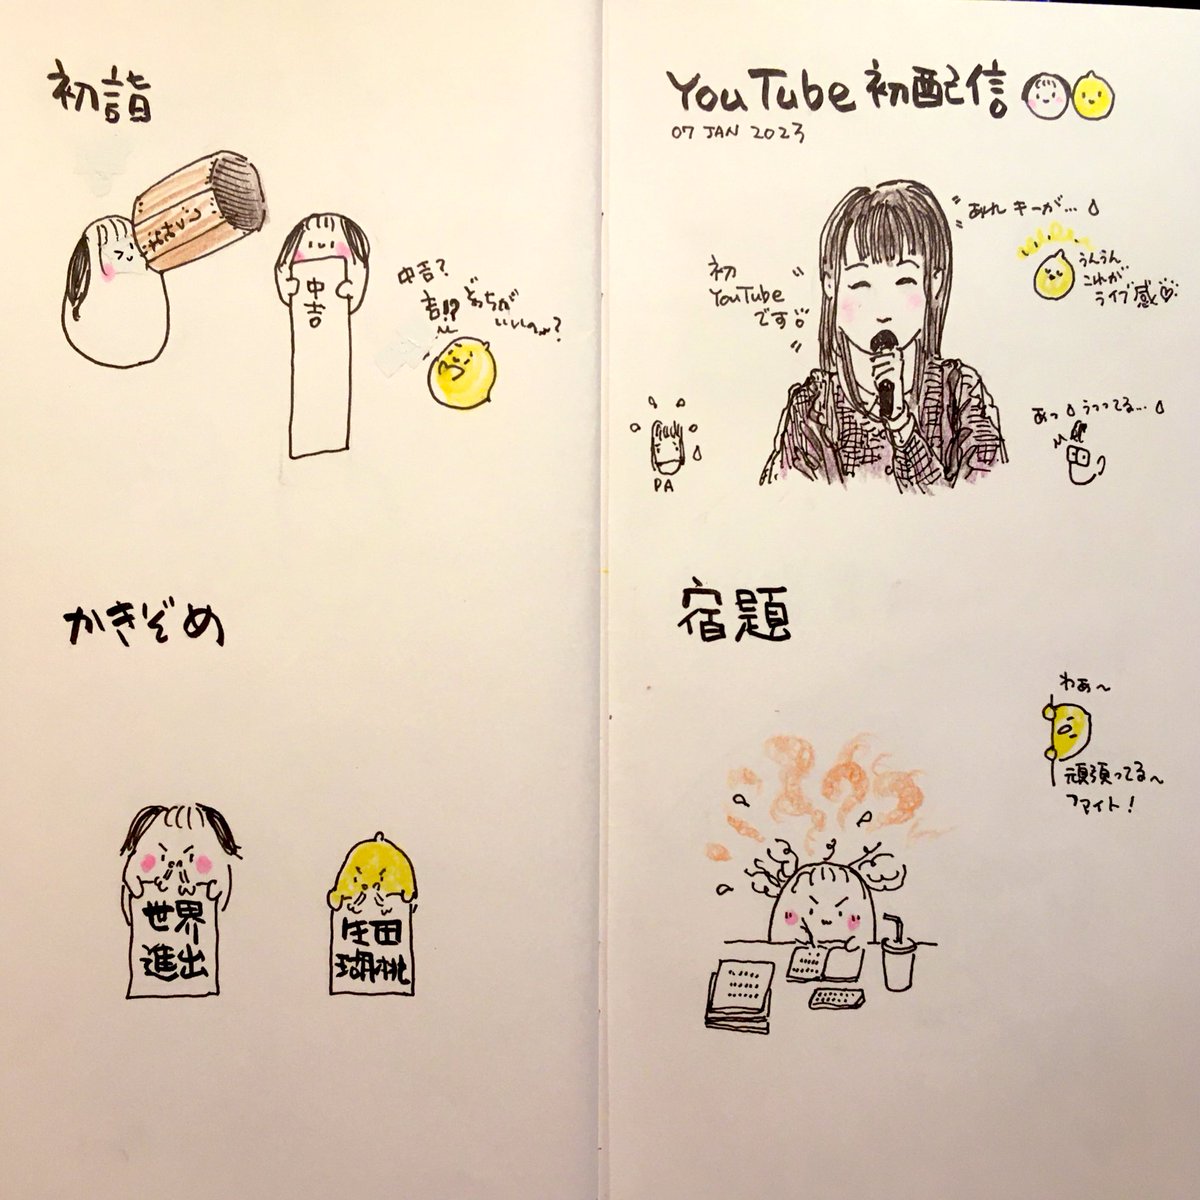 初詣
おみくじ
中吉
中吉?
吉!?
どっちが
いいの〜?
かきぞめ
世界
進出
生田
瑚桃
YouTube 初配信
07 JAN 2023
初
YouTube
です
あれ キーが…
うんうん
これが
ライブ感♡
PA
あっ うつってる…
宿題
わぁ〜
頑張ってる〜
ファイト!